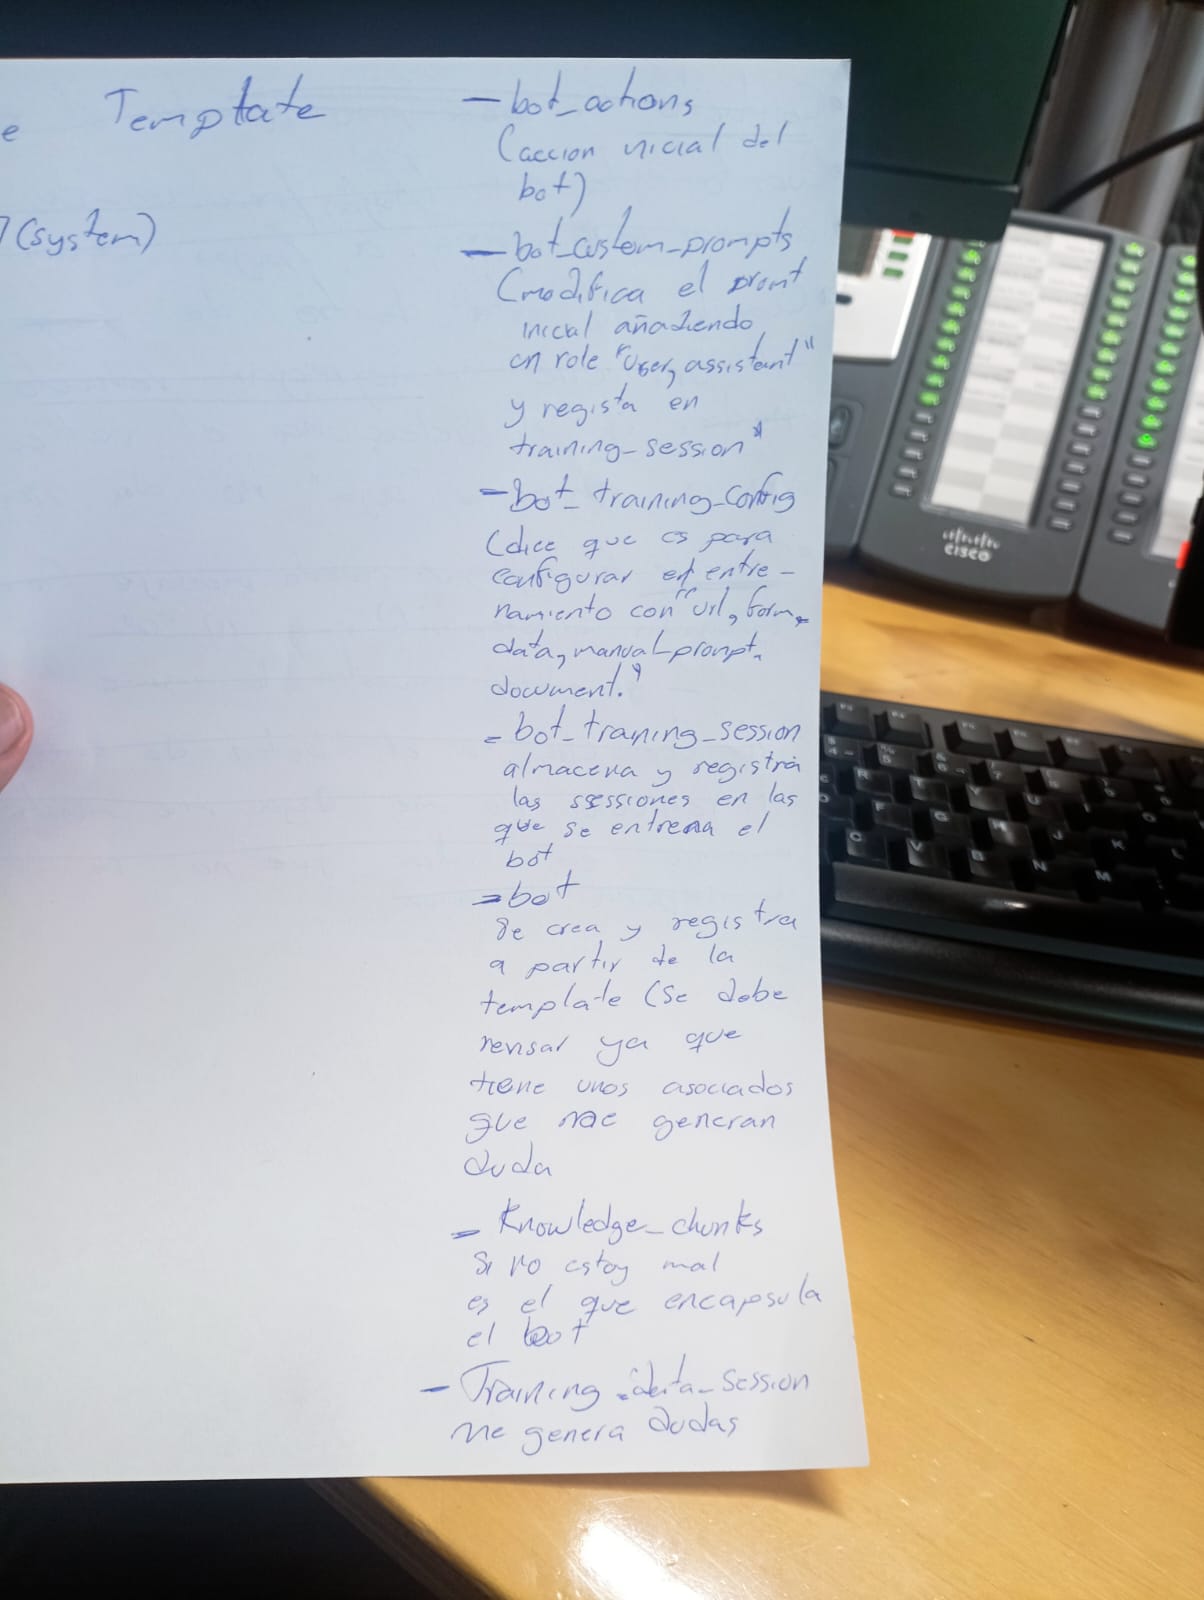 e Template
(system)
- bot_actions
(accion inicial del
bot)
- bot_custom_prompts
(modifica el promt
inicial añadiendo
un role "user, assistant"
y registra en
training_session"
- Bot_training_config
(dice que es para
configurar el entre-
namiento con "url, form_
data, manual_prompt,
document."
- bot_training_session
almacena y registra
las sessiones en las
que se entrena el
bot
- bot
se crea y registra
a partir de la
template (se debe
revisar ya que
tiene unos asociados
que me generan
duda
- Knowledge_chunks
si no estoy mal
es el que encapsula
el bot
- Training_data_session
me genera dudas
CISCO